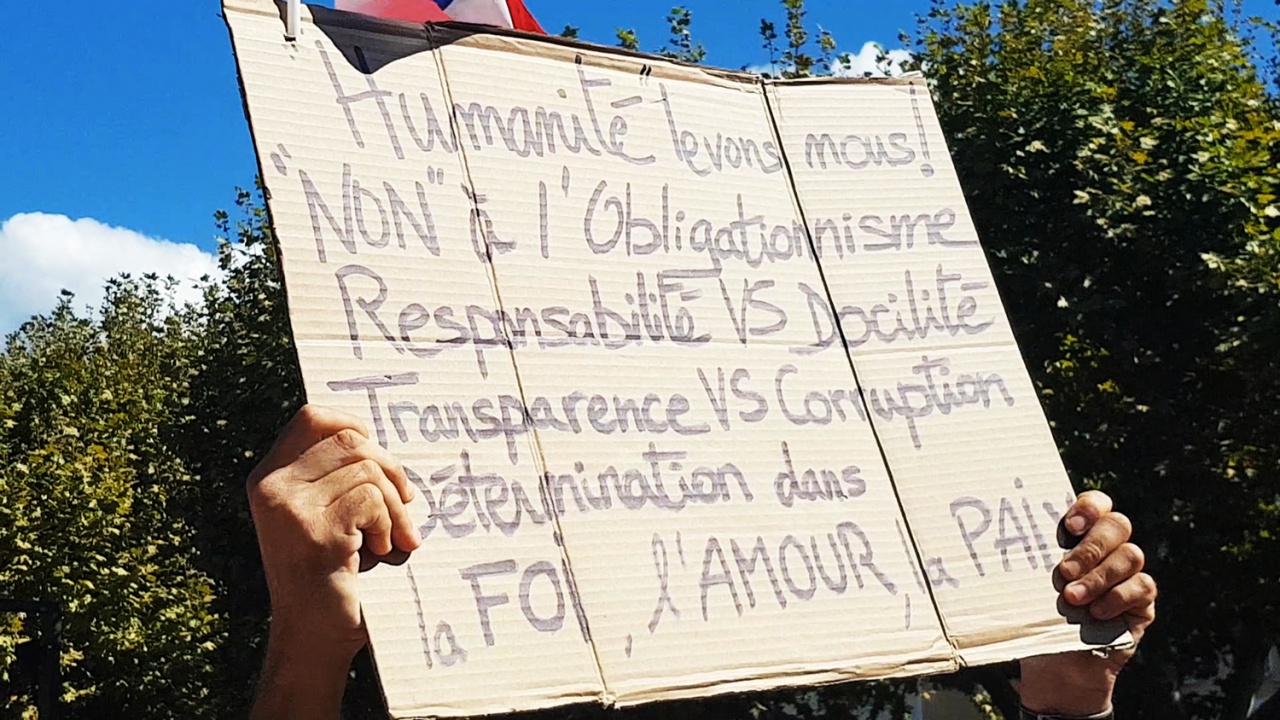 "Humanité" levons nous!
"NON" à l'Obligationnisme
Responsabilité VS Docilité
Transparence VS Corruption
Détermination dans
la FOI, l'AMOUR, la PAiX